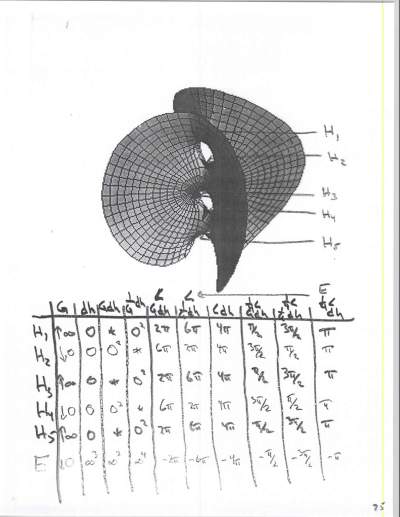 H₁
H₂
H₃
H₄
H₅
E
G dh Gdh 1/G dh
H₁ ↑∞ 0 * 0² 2π 6π 4π π/2 3π/2 π
H₂ ↓0 0 0² * 6π 2π 4π 3π/2 π/2 π
H₃ ↑∞ 0 * 0² 2π 6π 4π π/2 3π/2 π
H₄ ↓0 0 0² * 6π 2π 4π 3π/2 π/2 π
H₅ ↑∞ 0 * 0² 2π 6π 4π π/2 3π/2 π
E ↓0 ∞³ ∞² ∞⁴ -2π -6π -4π -π/2 -3π/2 -π